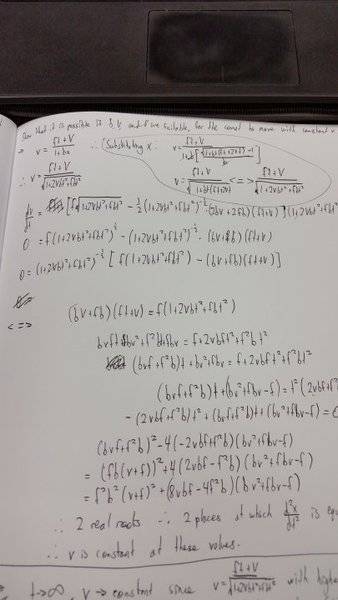 that it is possible if b, V, and f are suitable, for the camel to move with constant v
⇒ v = (ft+V)/(1+bx) ∴ (Substituting x: v = (ft+V)/(1+b[(√(1+bt(ft+2V)) -1)/b])
∴ v = (ft+V)/√(1+2Vbt+fbt²) v = (ft+V)/√(1+bt(ft+2V)) <=> (ft+V)/√(1+2Vbt+fbt²)
0 = f(1+2Vbt²+fbt²)^½ - (1+2Vbt²+fbt²)^-½ · (bv+fb)(ft+v)
0 = (1+2vbt²+fbt²)^-½ [f(1+2vbt²+fbt²) - (bv+fb)(ft+v)]
<=> (bv+fb)(ft+v) = f(1+2vbt²+fbt²)
bvft+bv²+f²bt+fbv = f+2vbft²+f²bt²
(bvf+f²b)t+bv²+fbv = f+2vbft²+f²bt²
(bvf+f²b)t+(bv²+fbv-f) = t²(2vbf+f²
-(2vbf+f²b)t²+(bvf+f²b)t+(bv²+fbv-f)=0
(bvf+f²b)²-4(-2vbf+f²b)(bv²+fbv-f)
= (fb(v+f))²+4(2vbf-f²b)(bv²+fbv-f)
= f²b²(v+f)²+(8vbf-4f²b)(bv²+fbv-f)
∴ 2 real roots ∴ 2 places at which d²x/dt² is equ
∴ v is constant at these values.
t→∞, v → constant since v = (ft+V)/√(1+2Vbt+fbt²) with highe